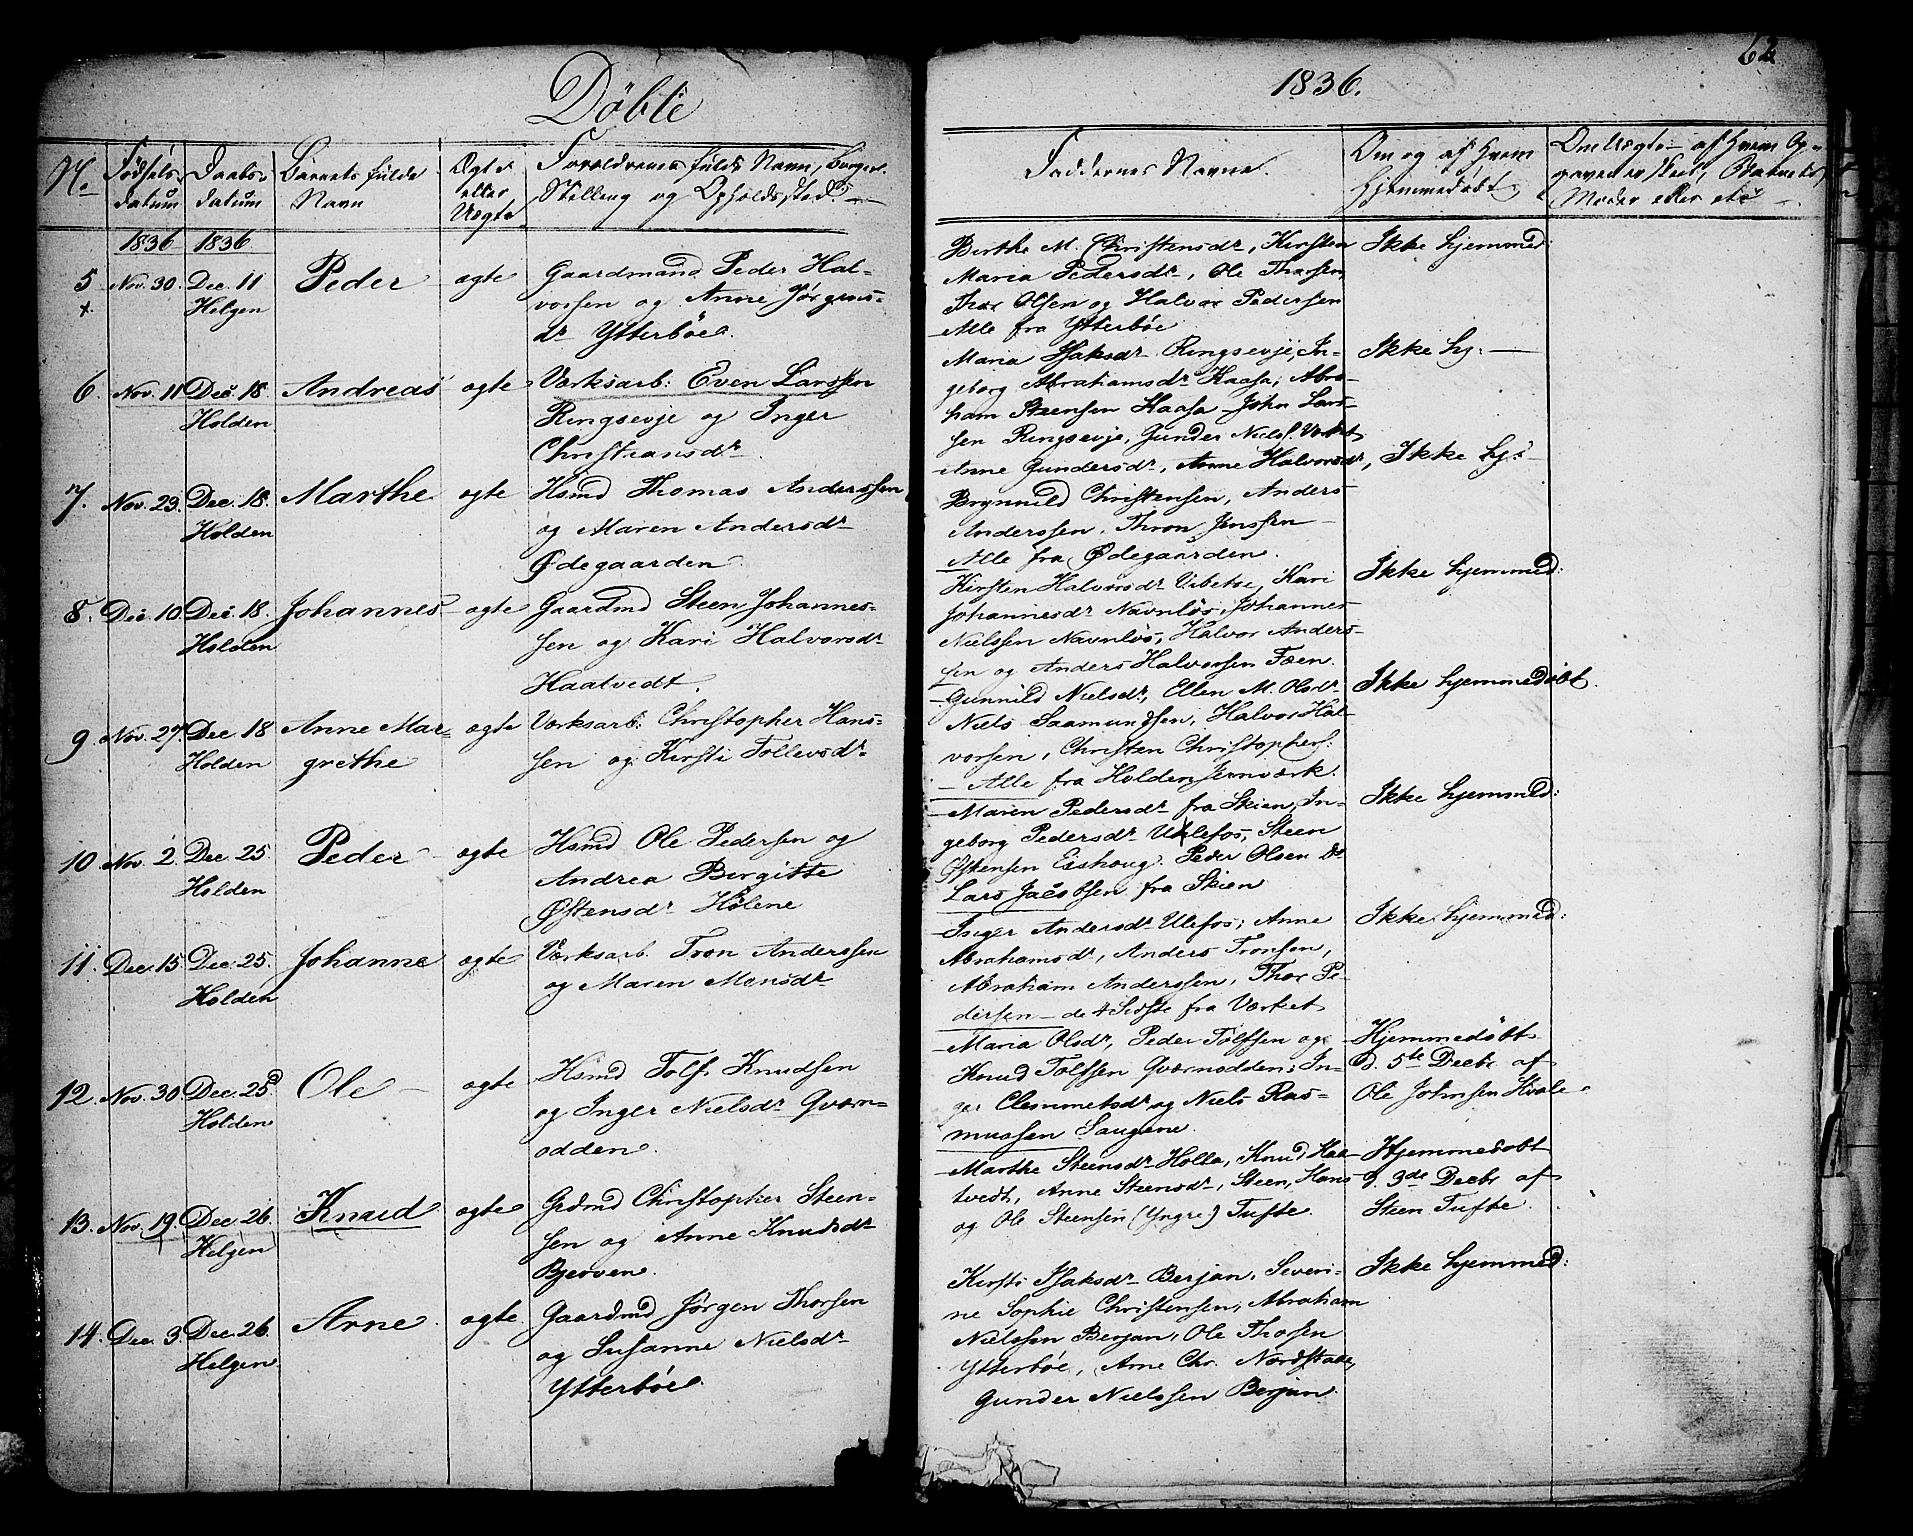 62
Döbte
1836.
No
Födsels-
datum
Daabs-
datum
Barnets fulde
Navn
Ægte
eller
Uægte
Forældrenes fulde Navn, Borgerl.
Stilling og Opholdssted.
Faddernes Navne.
Om og af hvem
hjemmedöbt.
Om Uægte - af hvem Op-
gaven er skeet, Barnets
Moder eller ei
1836
1836
5
Nov. 30.
Dec. 11
Helgen
Peder
ægte
Gaardmand Peder Hal-
vorsen og Anne Jørgens-
dr Ytterböe.
Birthe M. Christensdr, Kirsten
Maria Pedersdr, Ole Thorsen
Thor Olsen og Halvor Pedersen
Alle fra Ytterböe
Ikke hjemmed:
6.
Nov. 11
Dec. 18.
Holden
Andreas
ægte
Værksarb: Even Larssen
Ringsevje og Inger
Christiansdr
Maria Isaksdr Ringsevje, In-
geborg Abrahamsdr Kaasa, Abra-
ham Steensen Kaasa John Lars-
sen Ringsevje, Gunder Niels. Værket
Ikke hj:
7.
Nov. 23.
Dec. 18.
Holden
Marthe
ægte
Hsmd Thomas Anderssen
og Maren Andersdr
Ødegaarden
Anne Gundersdr, Anne Halvorsdr,
Brynnild Christensen, Anders
Anderssen, Thron Jenssen
Alle fra Ødegaarden.
Ikke hj:
8.
Dec. 10.
Dec. 18.
Holden
Johannes
ægte
Gaardmd Steen Johannes-
sen og Kari Halvorsdr
Haatvedt.
Kirsten Halvorsdr Vibetoe, Kari
Johannesdr Navnløs, Johannes
Nielssen Navnløs, Halvor Anders-
sen og Anders Halvorsen Fæen.
Ikke hjemmed:
9.
Nov. 27.
Dec. 18
Holden
Anne Mar-
grethe
ægte
Værksarb: Christopher Hans-
sen og Kirsti Tollevsdr
Gunnild Nielsdr, Ellen M. Olsdr
Niels Saamundsen, Halvor Hal-
vorsen, Christen Christophers:
Alle fra Holden Jernværk.
Ikke hjemmedöbt.
10.
Nov. 2.
Dec. 25.
Holden
Peder
ægte
Hsmd Ole Pedersen og
Andrea Birgitte
Østensdr Hölene
Maren Pedersdr fra Skien, In-
geborg Pedersdr Ulefos, Steen
Østensen Eishoug. Peder Olsen
Lars Jacobsen fra Skien
Ikke hjemmed:
11.
Dec. 15.
Dec. 25.
Holden
Johanne
ægte
Værksarb. Tron Anderssen
og Maren Monsdr
Inger Andersdr Ulefos, Anne
Abrahamsdr, Anders Tronsen,
Abraham Anderssen, Thor Pe-
dersen - de 4 Sidste fra Værket
Ikke hjemmed:
12.
Nov. 30
Dec. 25d
Holden
Ole
ægte
Hsmd Tolf Knudsen
og Inger Nielsdr Qværn-
odden.
Maria Olsdr, Peder Tolfsen og
Knud Tolfsen Qværnodden, In-
ger Clemmetsdr og Niels Ras-
mussen Saugene.
Hjemmedöbt
d. 5te Decbr af
Ole Johnsen Hvale
13.
Nov. 19.
Dec. 26.
Helgen
Knud
ægte
Grdmd Christopher Steen-
sen og Anne Knudsdr
Bjerven.
Marthe Steensdr Holla, Knud Haa-
tvedt, Anne Steensdr, Steen, Hans
og Ole Steensen (Yngre) Tufte.
Hjemmedöbt
d. 3de Decbr af
Steen Tufte.
14.
Dec. 3.
Dec. 26.
Helgen
Arne
ægte.
Gaardmd Jörgen Thorsen
og Susanne Nielsdr
Ytterböe
Kirsti Isaksdr Berjan, Severi-
ne Sophie Christensen, Abraham
Nielssen Berjan, Ole Thorsen
Ytterböe, Arne Chr. Nordstade,
Gunder Nielssen Berjan.
Ikke hjemmed: